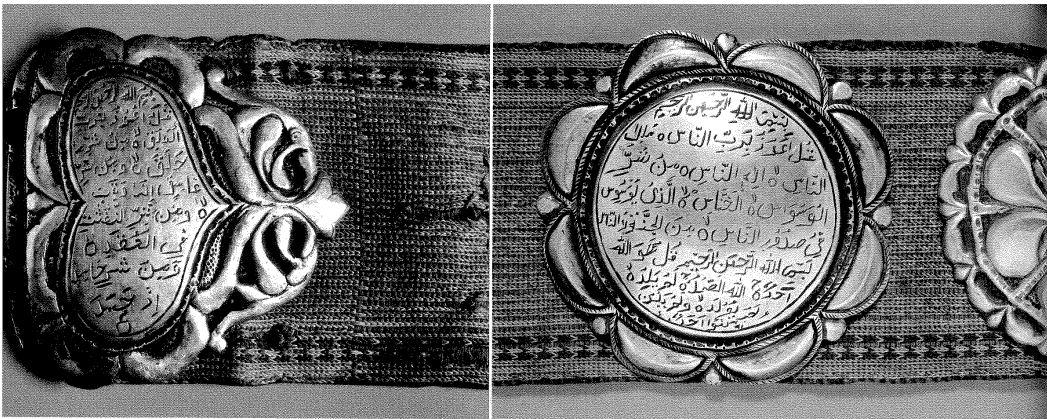 بسم الله الرحمن
قل اعوذ برب
الفلق ه من شر
خلق ه ومن شر
غاسق اذا وقب
ه ومن شر النفثت
في العقد ه
ومن شر حاسد
اذ حسد
بسم الله الرحمن الرحيم
قل اعوذ برب الناس ه ملك
الناس ه اله الناس ه من شر
الوسواس ه الخناس ه الذي يوسوس
في صدور الناس ه من الجنة والناس
بسم الله الرحمن الرحيم قل هو الله
احد ه الله الصمد ه لم يلد ه
ولم يولد ه ولم يكن
كفوا احد